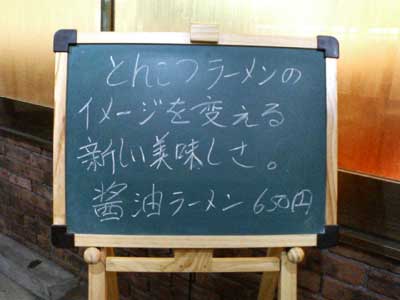 とんこつラーメンの
イメージを変える
新しい美味しさ。
醤油ラーメン 650円